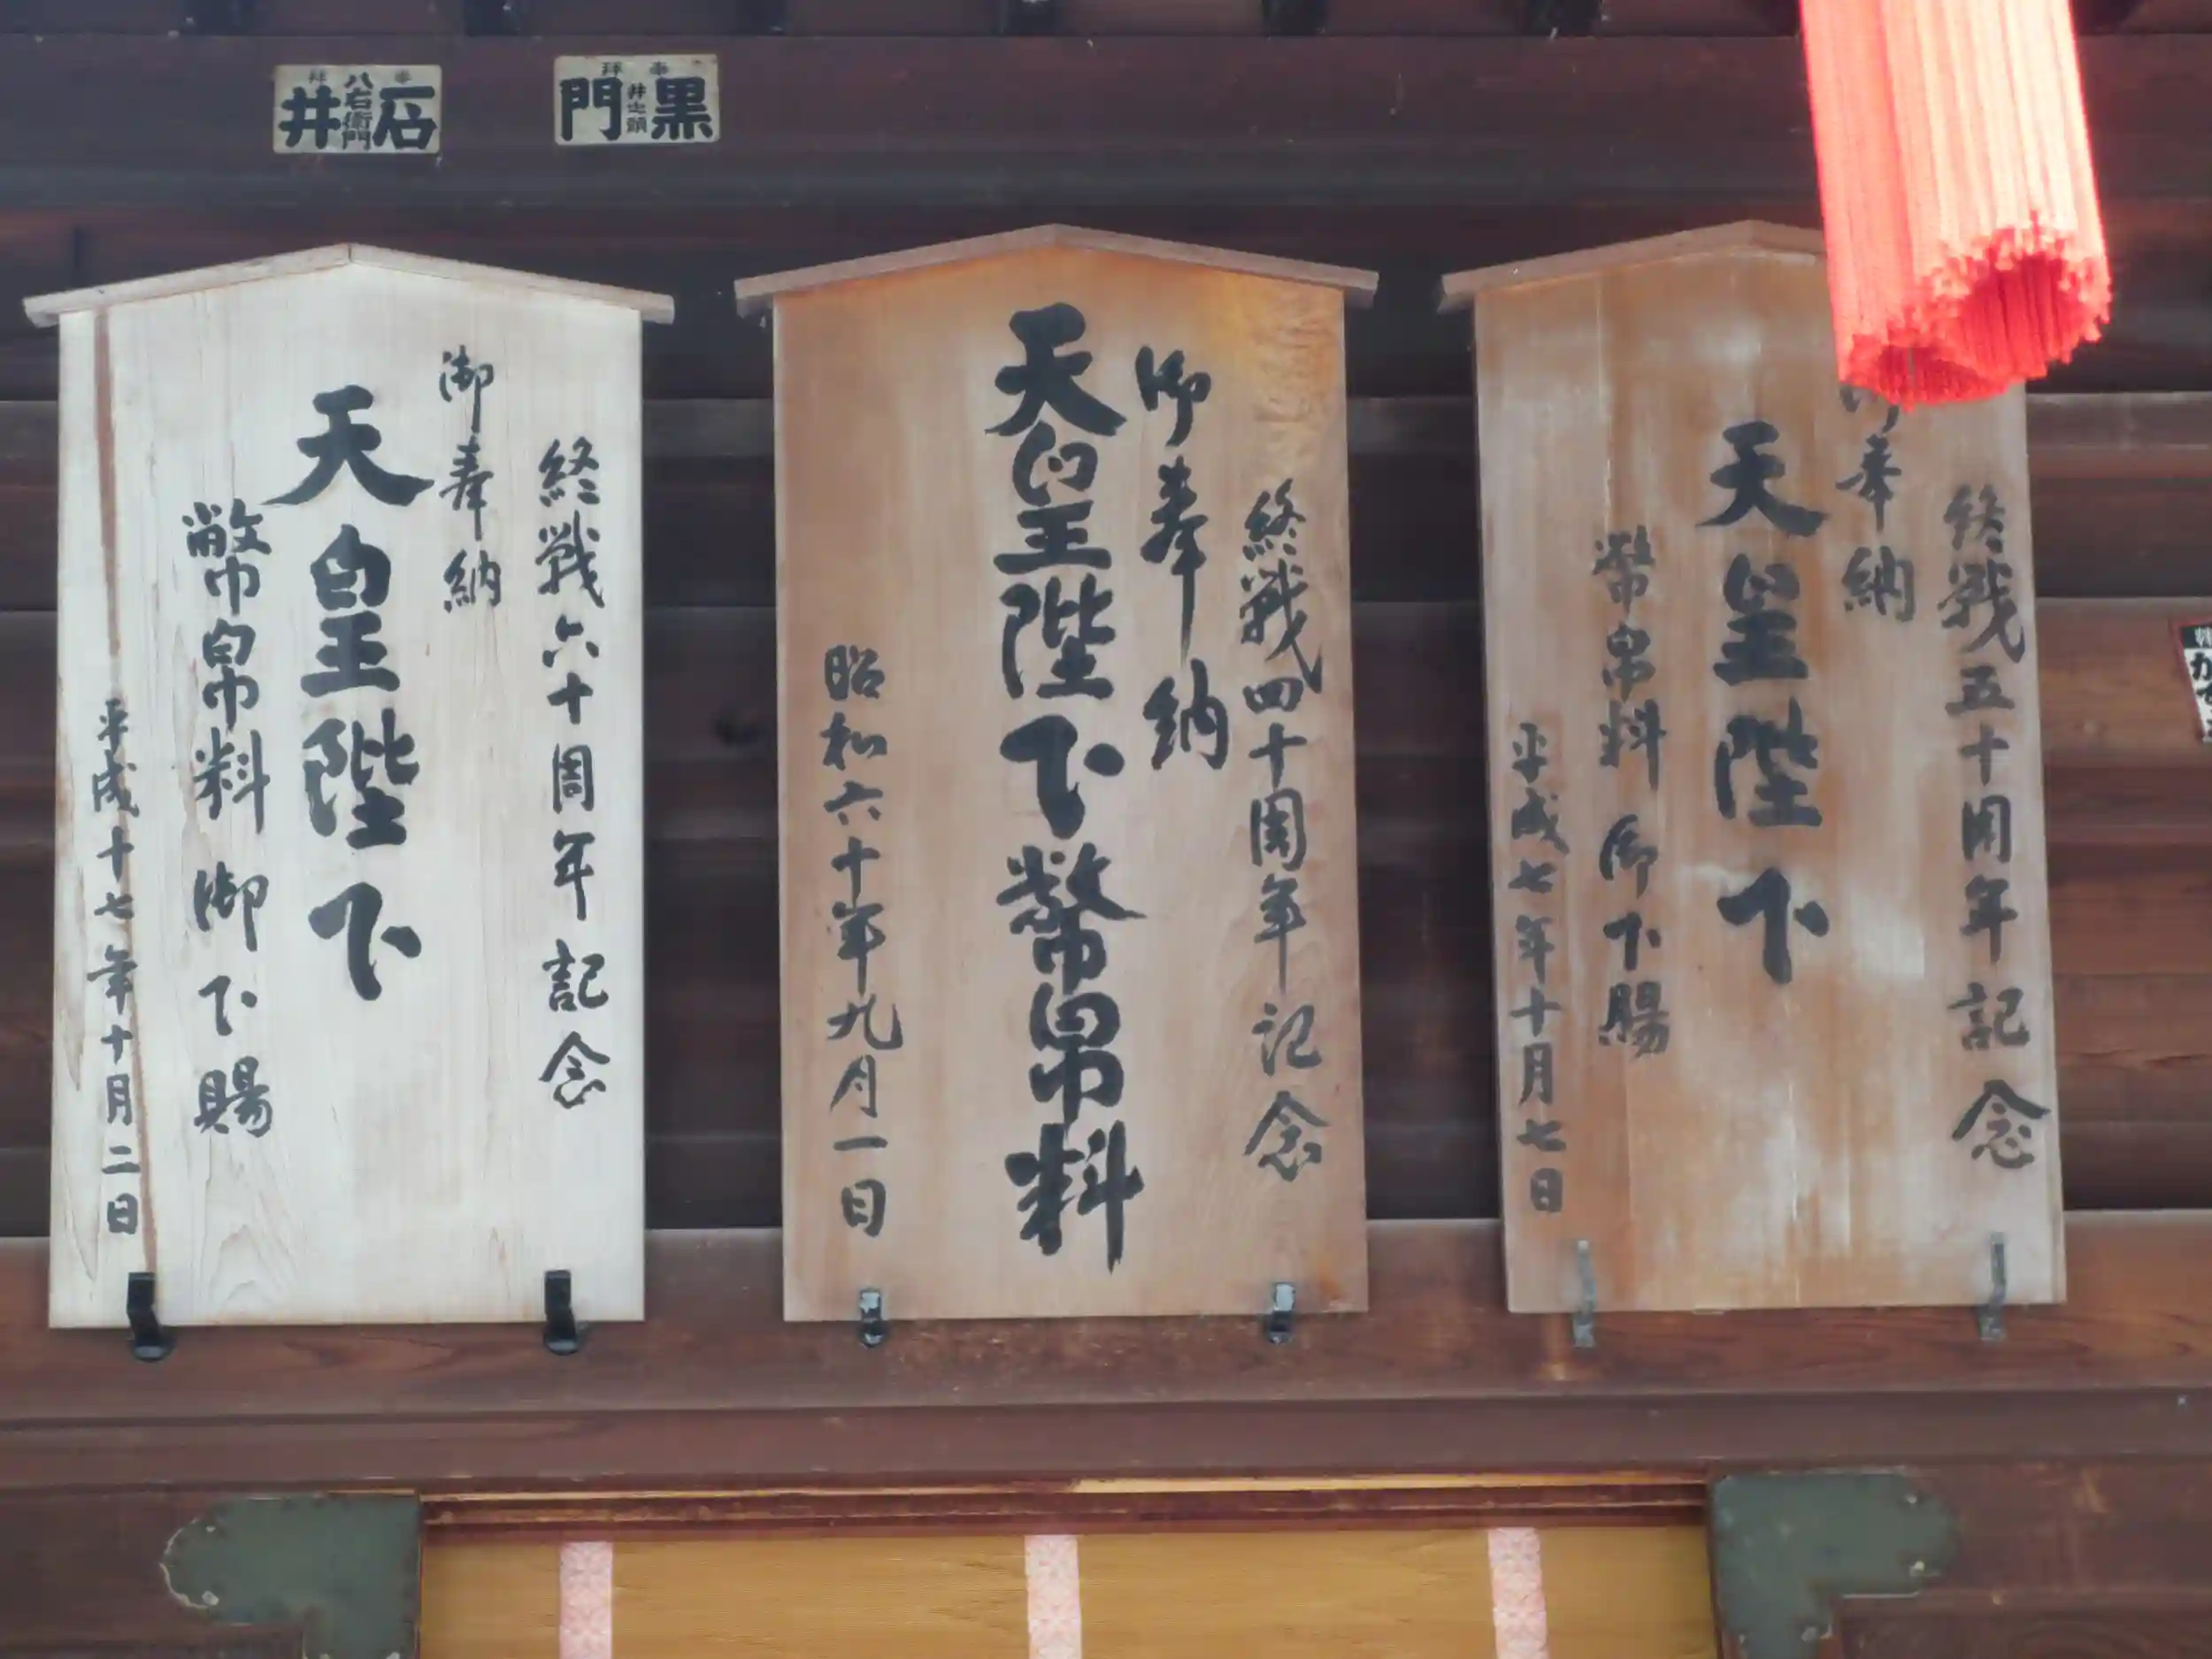 奉拝
黒門
井之頭
奉拝
石井
八右衛門
終戦五十周年記念
御奉納
天皇陛下
幣帛料御下賜
平成七年十月七日
終戦四十周年記念
御奉納
天皇陛下幣帛料
昭和六十年九月一日
終戦六十周年記念
御奉納
天皇陛下
幣帛料御下賜
平成十七年十月二日